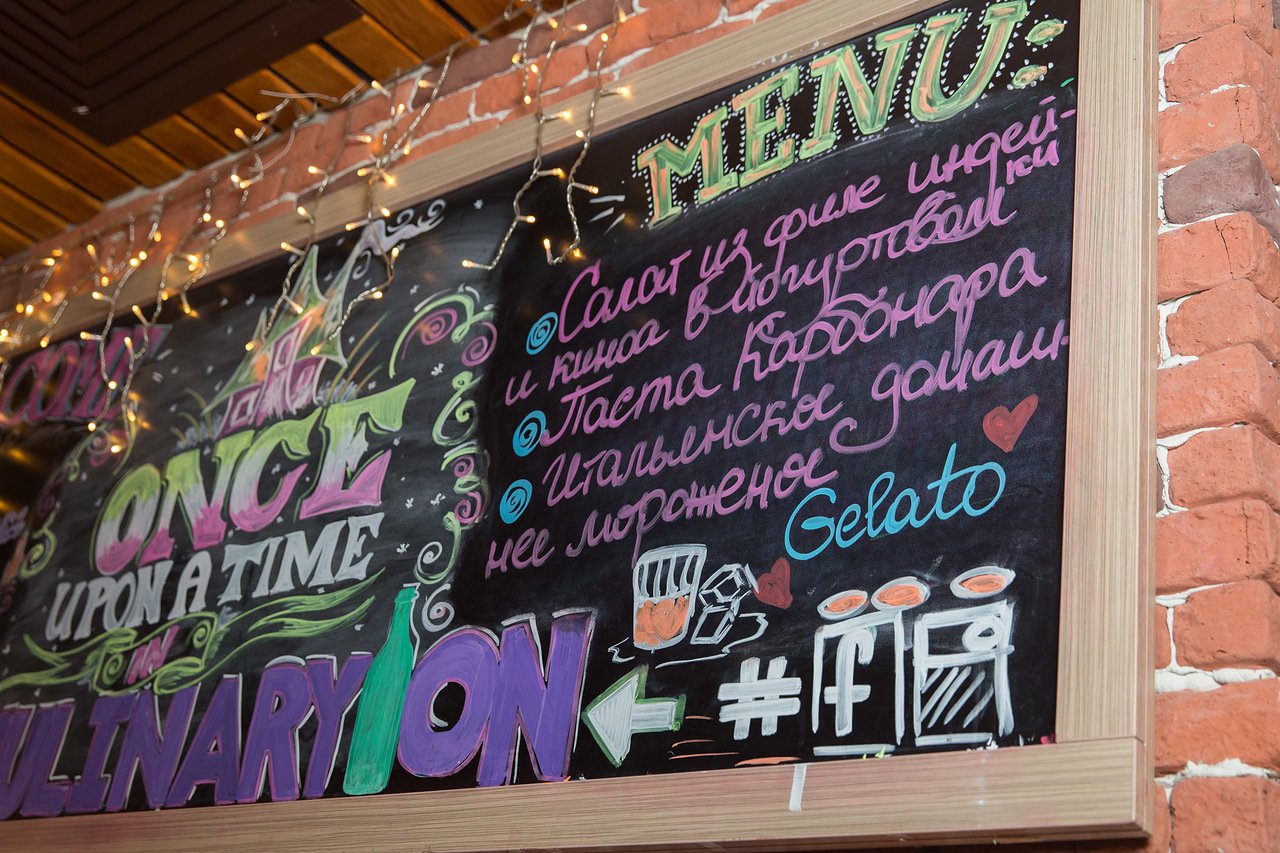 MENU:
Салат из филе индей-
ки
и киноа в йогуртовом
Паста Карбонара
Итальянское домаш-
нее мороженое
Gelato
COM
ONCE
UPON A TIME
IN
ULINARYION
#f